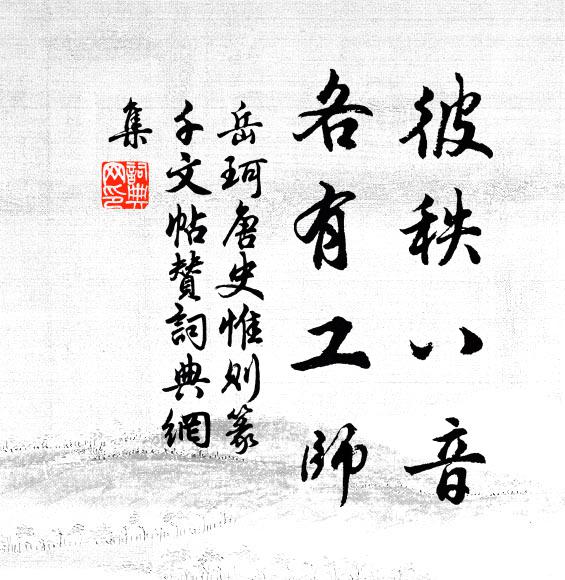 彼秩八音
各有工师
岳珂唐史惟则篆
千文帖赞詞典網
集
詞典
网印